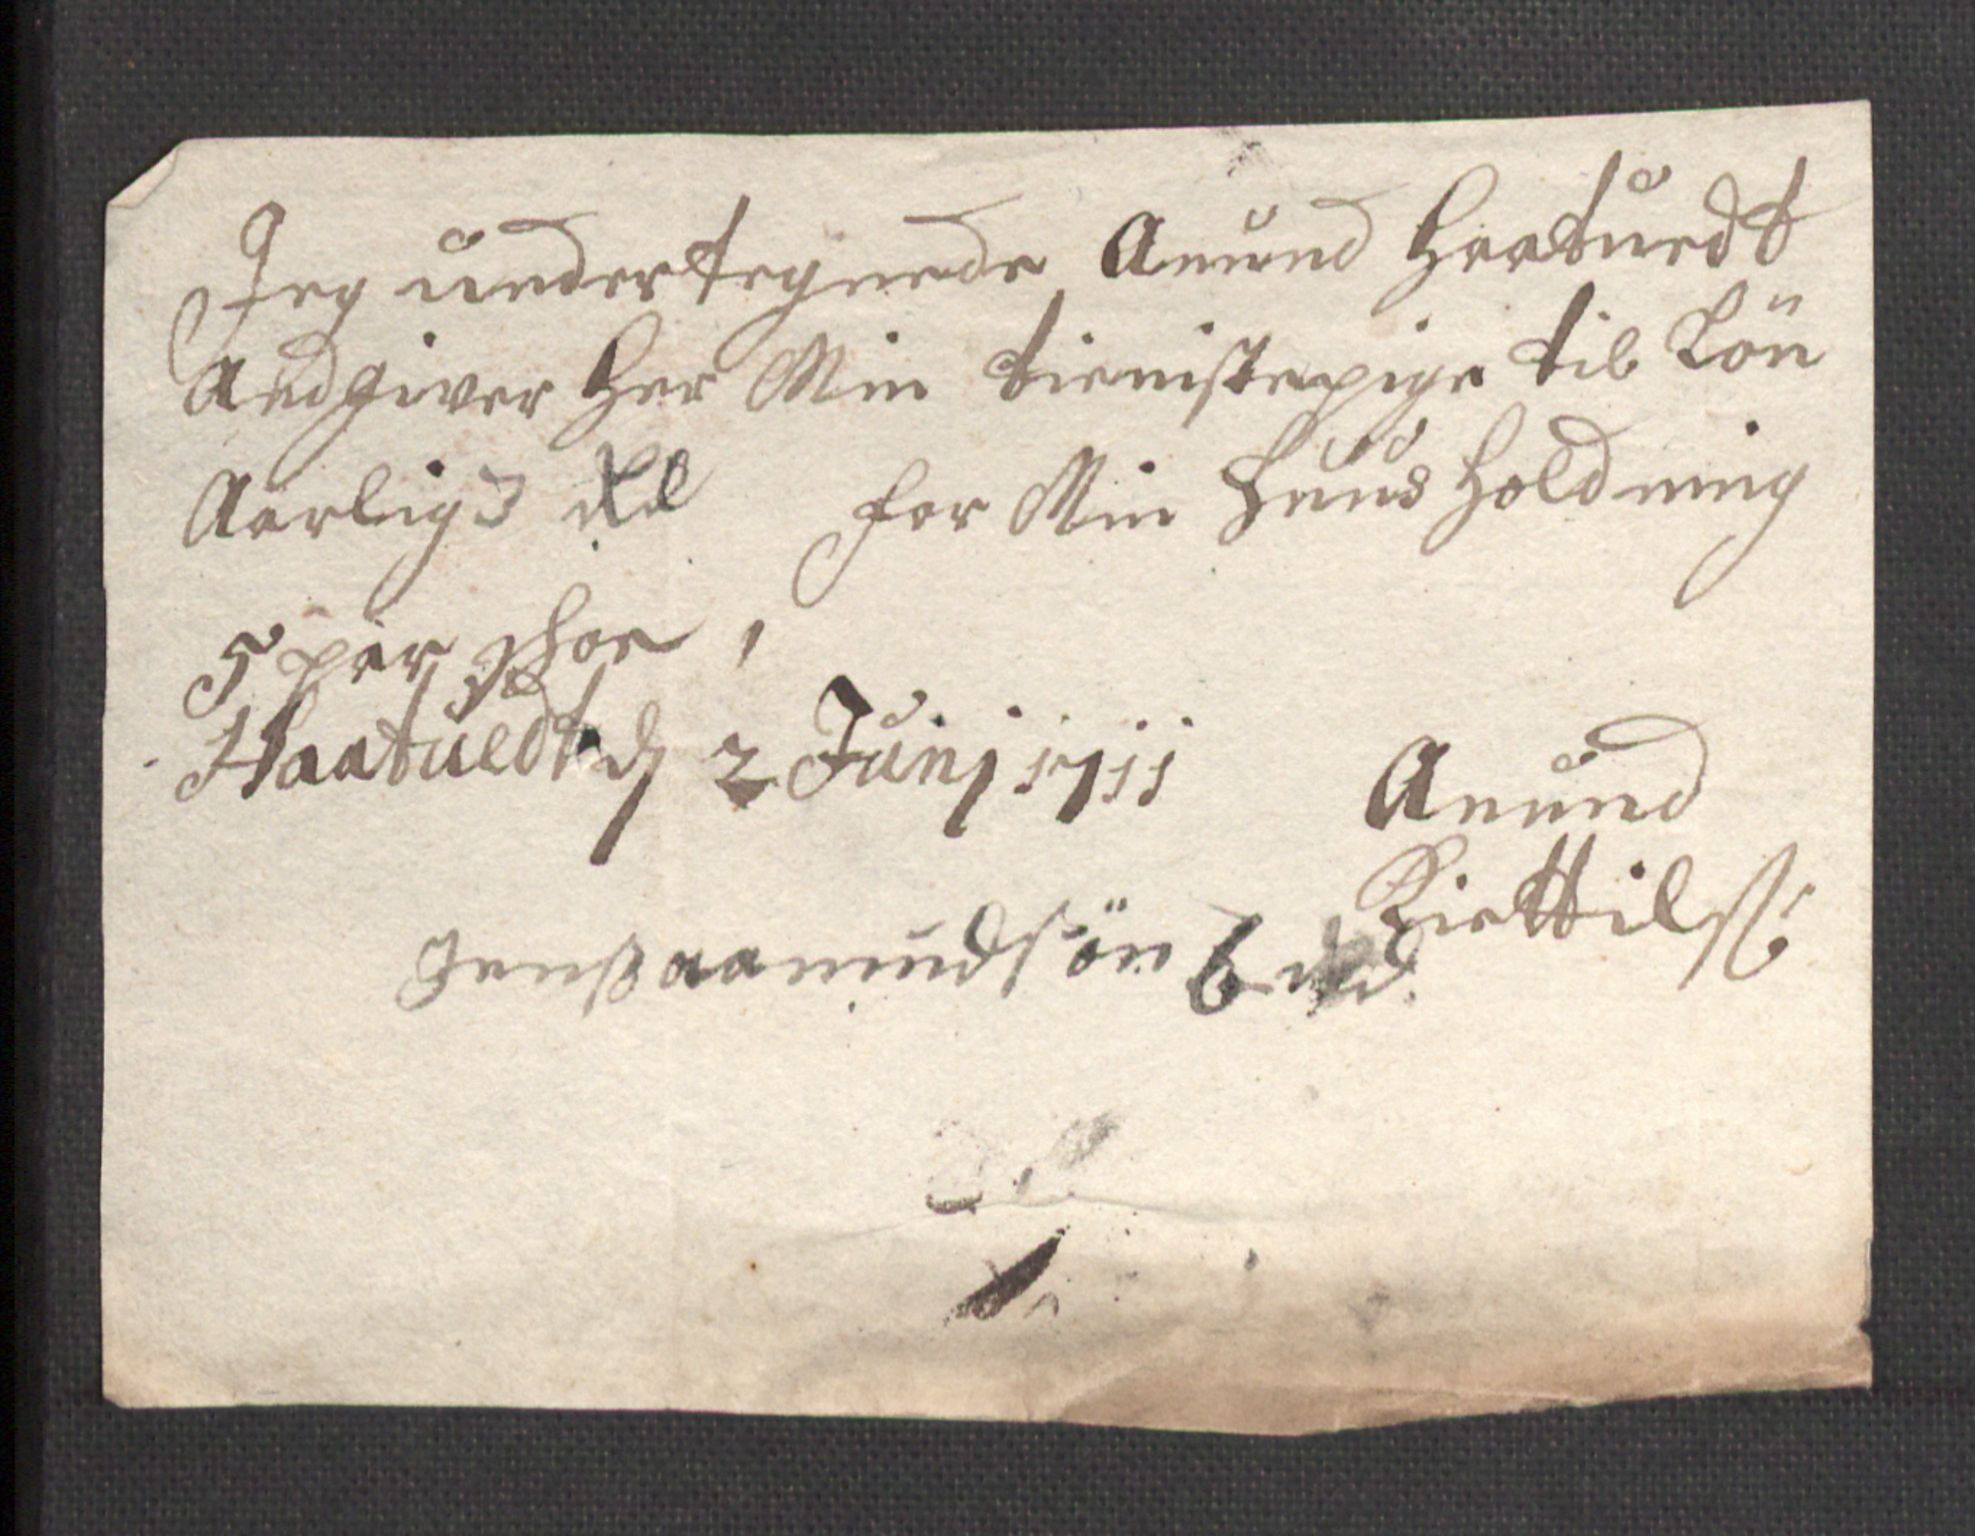 Jeg undertegnede Anund Haatuedt
Andgiver Her Min tienistepige til Lön
Aarlig 3 Rd for Min Huus Holdning
5 par Skoe,
Haatuedt d 2 Junj 1711
Anund
Kiettilss:
Jenß aamudsön 6 Rd